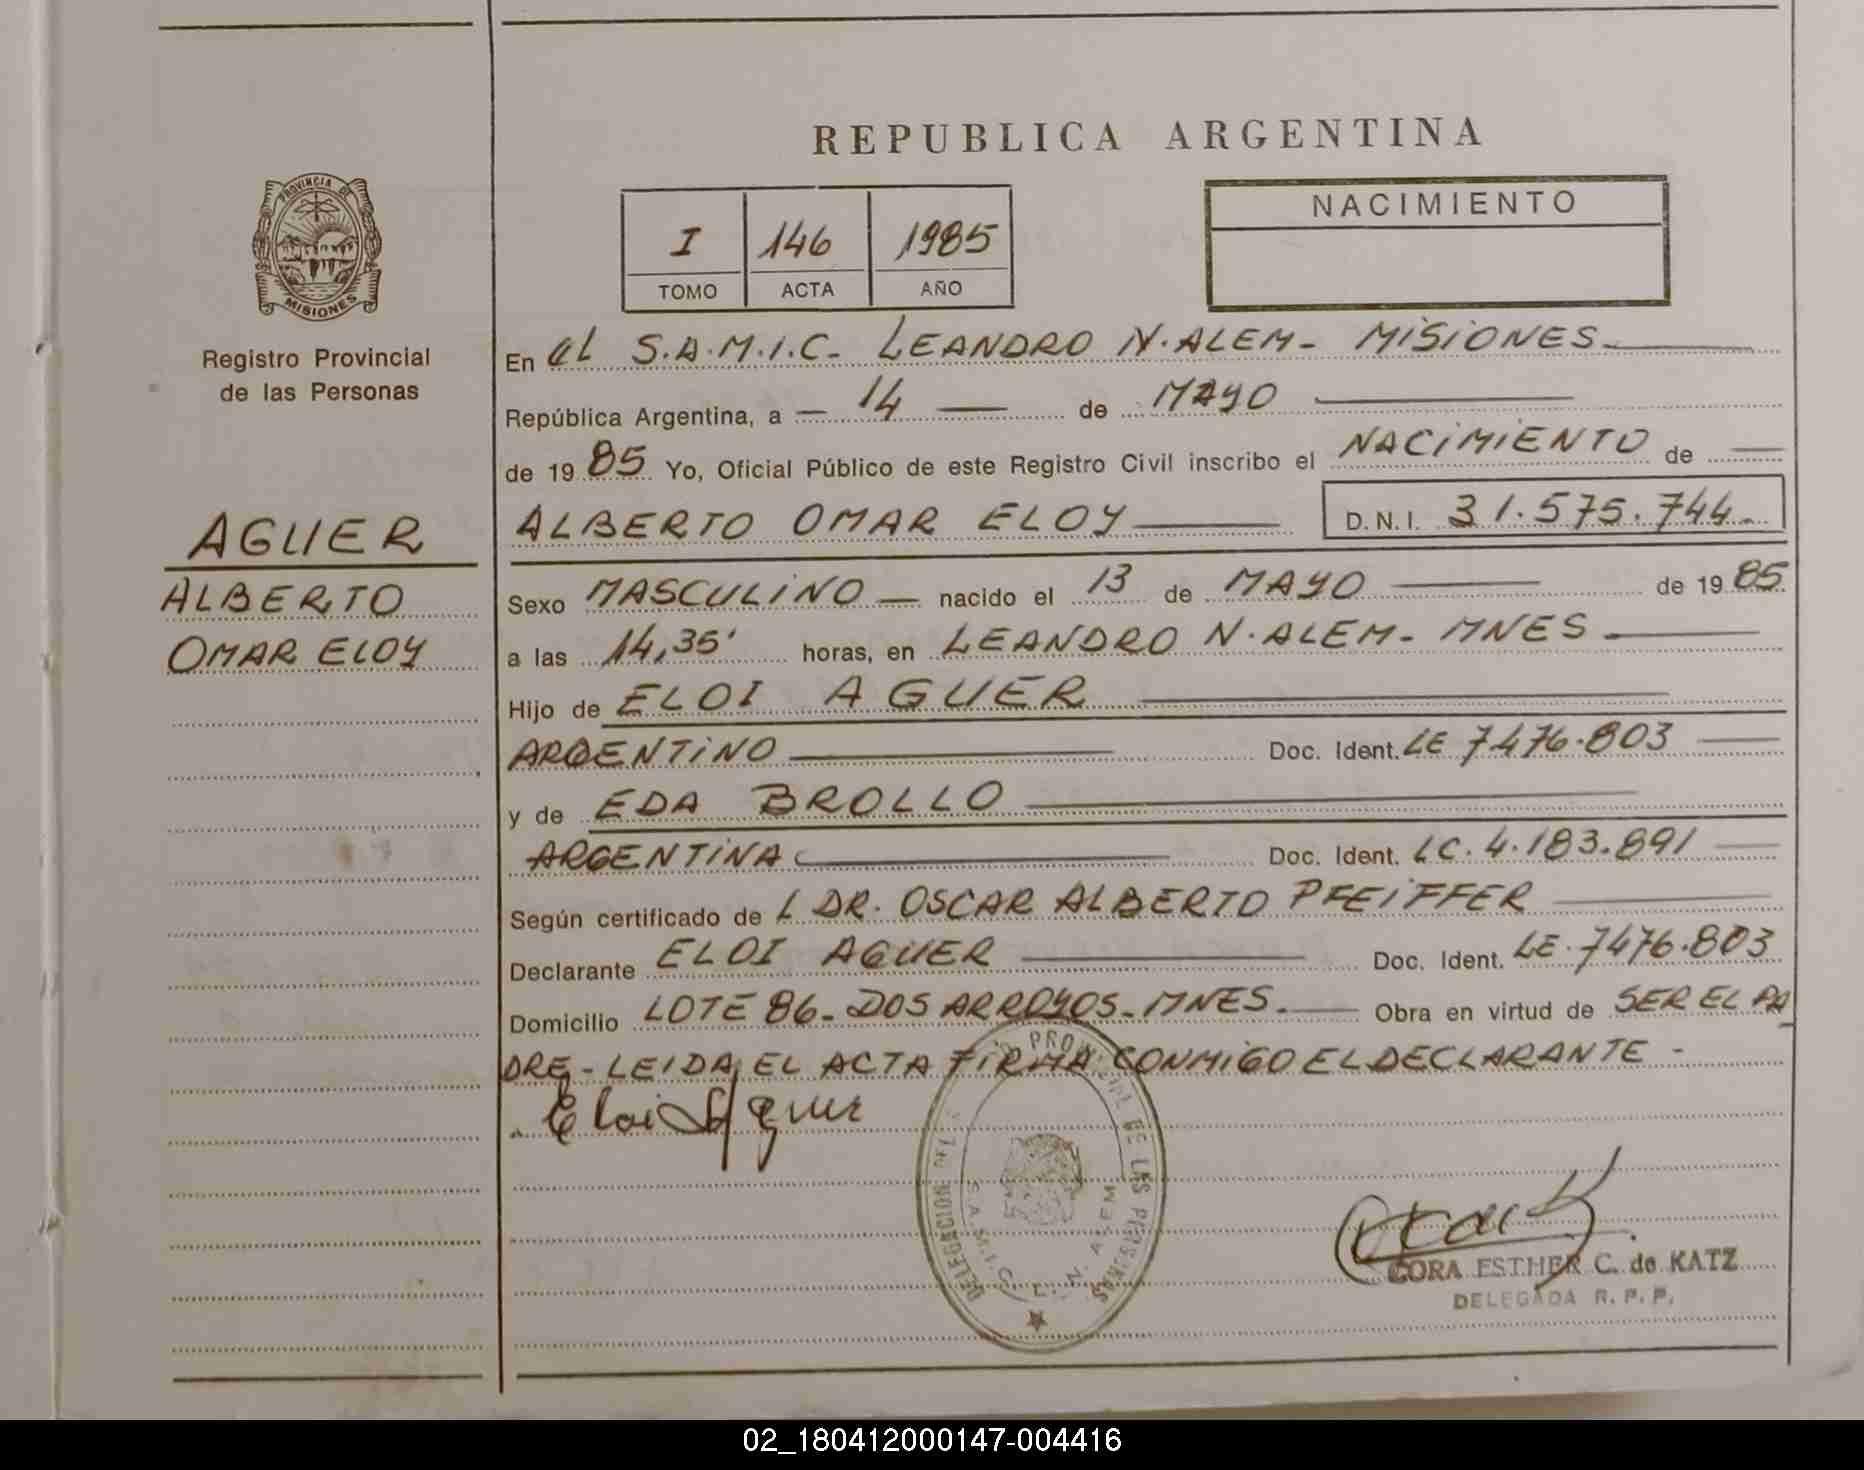 REPUBLICA ARGENTINA
PROVINCIA DE
MISIONES
Registro Provincial
de las Personas
I 146 1985
TOMO ACTA AÑO
NACIMIENTO
En el S.A.M.I.C. LEANDRO N. ALEM - MISIONES
República Argentina, a 14 de MAYO
de 1985 Yo, Oficial Público de este Registro Civil inscribo el NACIMIENTO de
ALBERTO OMAR ELOY D.N.I. 31.575.744
AGUER
ALBERTO
OMAR ELOY
Sexo MASCULINO nacido el 13 de MAYO de 1985
a las 14,35' horas, en LEANDRO N. ALEM - MNES
Hijo de ELOI AGUER
ARGENTINO Doc. Ident. LE 7476.803
y de EDA BROLLO
ARGENTINA Doc. Ident. LC. 4.183.891
Según certificado de L DR. OSCAR ALBERTO PFEIFFER
Declarante ELOI AGUER Doc. Ident. LE. 7476.803
Domicilio LOTE 86 - DOS ARROYOS - MNES. Obra en virtud de SER EL PA
DRE - LEIDA EL ACTA FIRMA CONMIGO EL DECLARANTE -
Eloi Aguer
DELEGACION DEL PROVINCIAL DE LAS PERSONAS
S.A.M.I.C. L. N. ALEM
CORA ESTHER C. de KATZ
DELEGADA R. P. P.
02_180412000147-004416